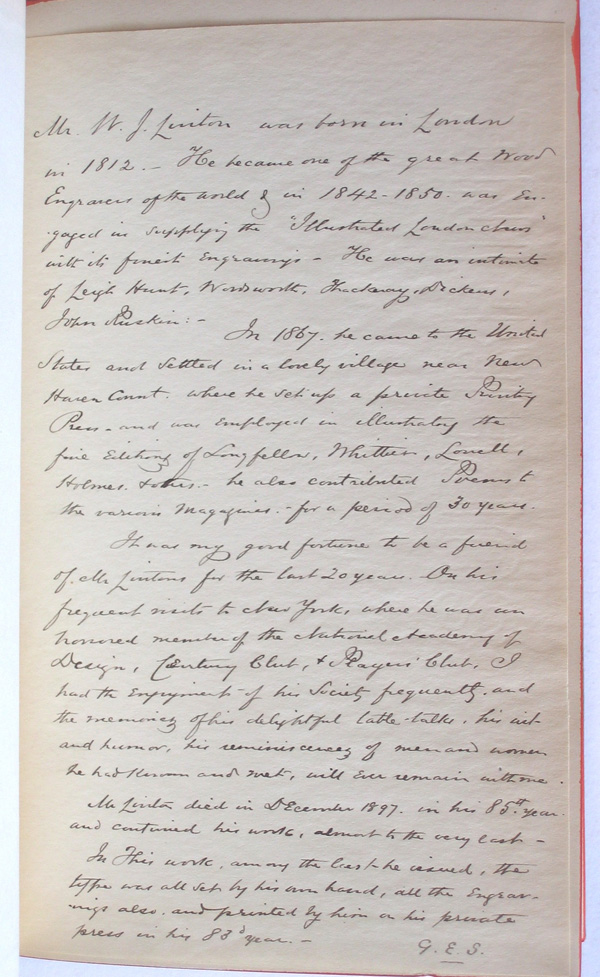 Mr. W. J. Linton was born in London
in 1812. - He became one of the great Wood
Engravers of the world & in 1842-1850. was En-
gaged in supplying the "Illustrated London News"
with its finest Engravings - He was an intimate
of Leigh Hunt, Wordsworth, Thackeray, Dickens,
John Ruskin: -
In 1867. he came to the United
States and settled in a lovely village near New
Haven Connt. where he set up a private Printing
Press - and was employed in illustrating the
fine Editions of Longfellow, Whittier, Lowell,
Holmes. & others. - he also contributed Poems to
the various Magazines. - for a period of 30 years.
It was my good fortune to be a friend
of. Mr Lintons for the last 20 years. On his
frequent visits to New York, where he was an
honored member of the National Academy of
Design, Century Club, & Players Club, I
had the Enjoyment of his Society frequently. and
the memories of his delightful table-talks, his wit
and humor, his reminiscences of men and women
he had known and met, will Ever remain with me.
Mr Linton died in December 1897. in his 85th year.
and continued his work, almost to the very last -
In This work, among the last he issued, the
type was all set by his own hand, all the Engrav-
ings also. and printed by him on his private
press in his 83d year. -
G. E. S.